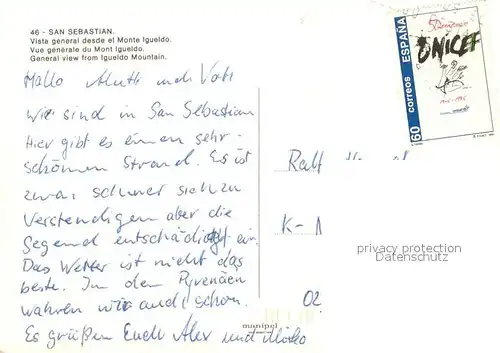 46 - SAN SEBASTIAN.
Vista general desde el Monte Igueldo.
Vue générale du Mont Igueldo.
General view from Igueldo Mountain.
Hallo Mutti und Vati
Wir sind in San Sebastian
Hier gibt es einen sehr
schönen Strand. Es ist
zwar schwer sich zu
Verstendigen aber die
Gegend entschädigt ein.
Das Wetter ist nicht das
beste. In den Pyrenäen
wahren wir auch schon.
Es grüßen Euch Alex und
Ralf
K-
02
privacy protection
Datenschutz
manipel
60 correos ESPAÑA
UNICEF
1946-1996